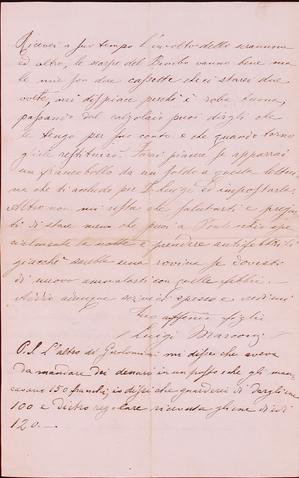 Ricevei a suo tempo l'involto dello scarmone
ed altro, le scarpe del Bimbo vanno bene ma
le mie son due cassette che ci starei due
volte, mi dispiace perchè è roba buona,
passando dal calzolaio puoi dirgli che
le tengo per suo conto e che quando torno
gliele restituirò. Farai piacere se apporrai
un francobollo da un soldo a questa lettera
ma che ti accludo per ed impostarla.
Altro non mi resta che salutarti e pregar
ti di stare meno che puoi a Pontecchio spe
cialmente la notte e prendere antifebbrili
giacchè sarebbe una rovina se dovesti
di nuovo ammalarti con quelle febbri.
Addio adunque scrivi spesso e credimi
Tuo affmo
Luigi
P.S. L'altro dì mi disse che aveva
da mandare dei denari in un posto che gli man
cavano 150 franchi; io dissi che guarderei di dargliene
100 e dietro regolare ricevuta gliene diedi
120.—